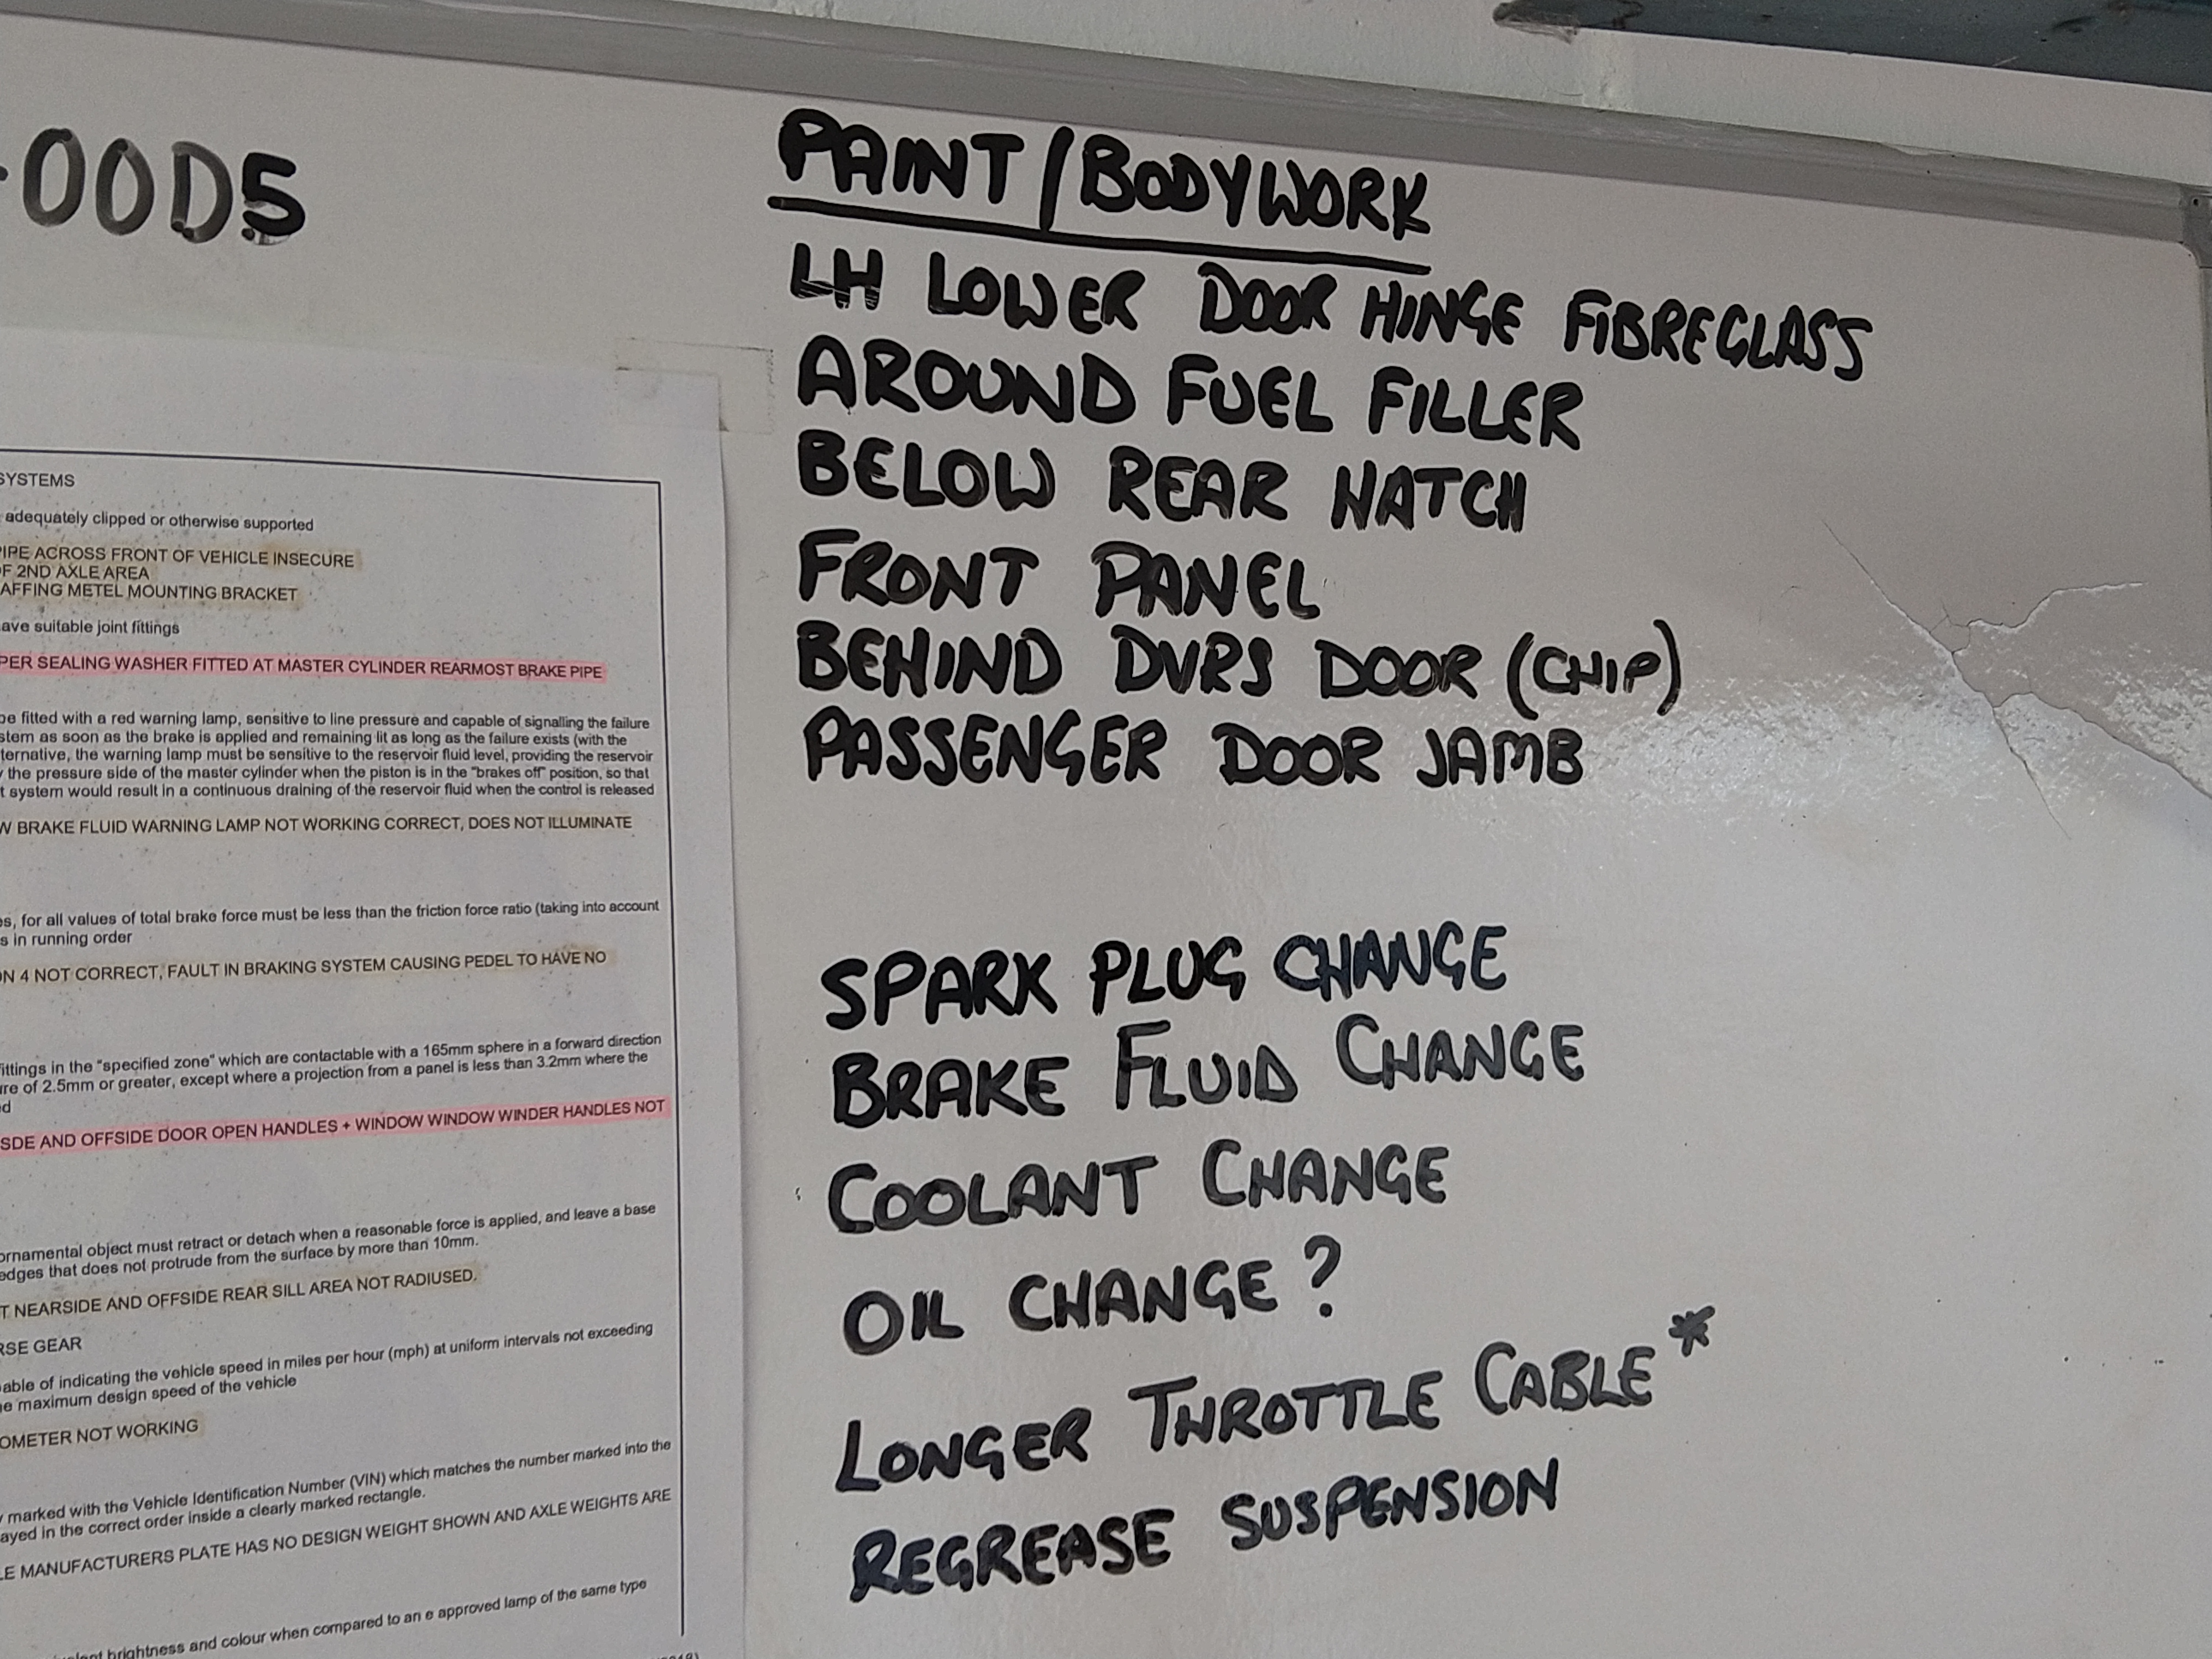 OOD5
SYSTEMS
adequately clipped or otherwise supported
PIPE ACROSS FRONT OF VEHICLE INSECURE
OF 2ND AXLE AREA
AFFING METEL MOUNTING BRACKET
ave suitable joint fittings
PER SEALING WASHER FITTED AT MASTER CYLINDER REARMOST BRAKE PIPE
be fitted with a red warning lamp, sensitive to line pressure and capable of signalling the failure
stem as soon as the brake is applied and remaining lit as long as the failure exists (with the
ternative, the warning lamp must be sensitive to the reservoir fluid level, providing the reservoir
the pressure side of the master cylinder when the piston is in the "brakes off" position, so that
t system would result in a continuous draining of the reservoir fluid when the control is released
W BRAKE FLUID WARNING LAMP NOT WORKING CORRECT, DOES NOT ILLUMINATE
es, for all values of total brake force must be less than the friction force ratio (taking into account
s in running order
ON 4 NOT CORRECT, FAULT IN BRAKING SYSTEM CAUSING PEDEL TO HAVE NO
fittings in the "specified zone" which are contactable with a 165mm sphere in a forward direction
re of 2.5mm or greater, except where a projection from a panel is less than 3.2mm where the
ed
SDE AND OFFSIDE DOOR OPEN HANDLES + WINDOW WINDOW WINDER HANDLES NOT
ornamental object must retract or detach when a reasonable force is applied, and leave a base
edges that does not protrude from the surface by more than 10mm.
T NEARSIDE AND OFFSIDE REAR SILL AREA NOT RADIUSED.
RSE GEAR
able of indicating the vehicle speed in miles per hour (mph) at uniform intervals not exceeding
e maximum design speed of the vehicle
OMETER NOT WORKING
marked with the Vehicle Identification Number (VIN) which matches the number marked into the
ayed in the correct order inside a clearly marked rectangle.
LE MANUFACTURERS PLATE HAS NO DESIGN WEIGHT SHOWN AND AXLE WEIGHTS ARE
brightness and colour when compared to an e approved lamp of the same type
PAINT/BODYWORK
LH LOWER DOOR HINGE FIBREGLASS
AROUND FUEL FILLER
BELOW REAR HATCH
FRONT PANEL
BEHIND DVRS DOOR (CHIP)
PASSENGER DOOR JAMB
SPARK PLUG CHANGE
BRAKE FLUID CHANGE
COOLANT CHANGE
OIL CHANGE?
LONGER THROTTLE CABLE*
REGREASE SUSPENSION